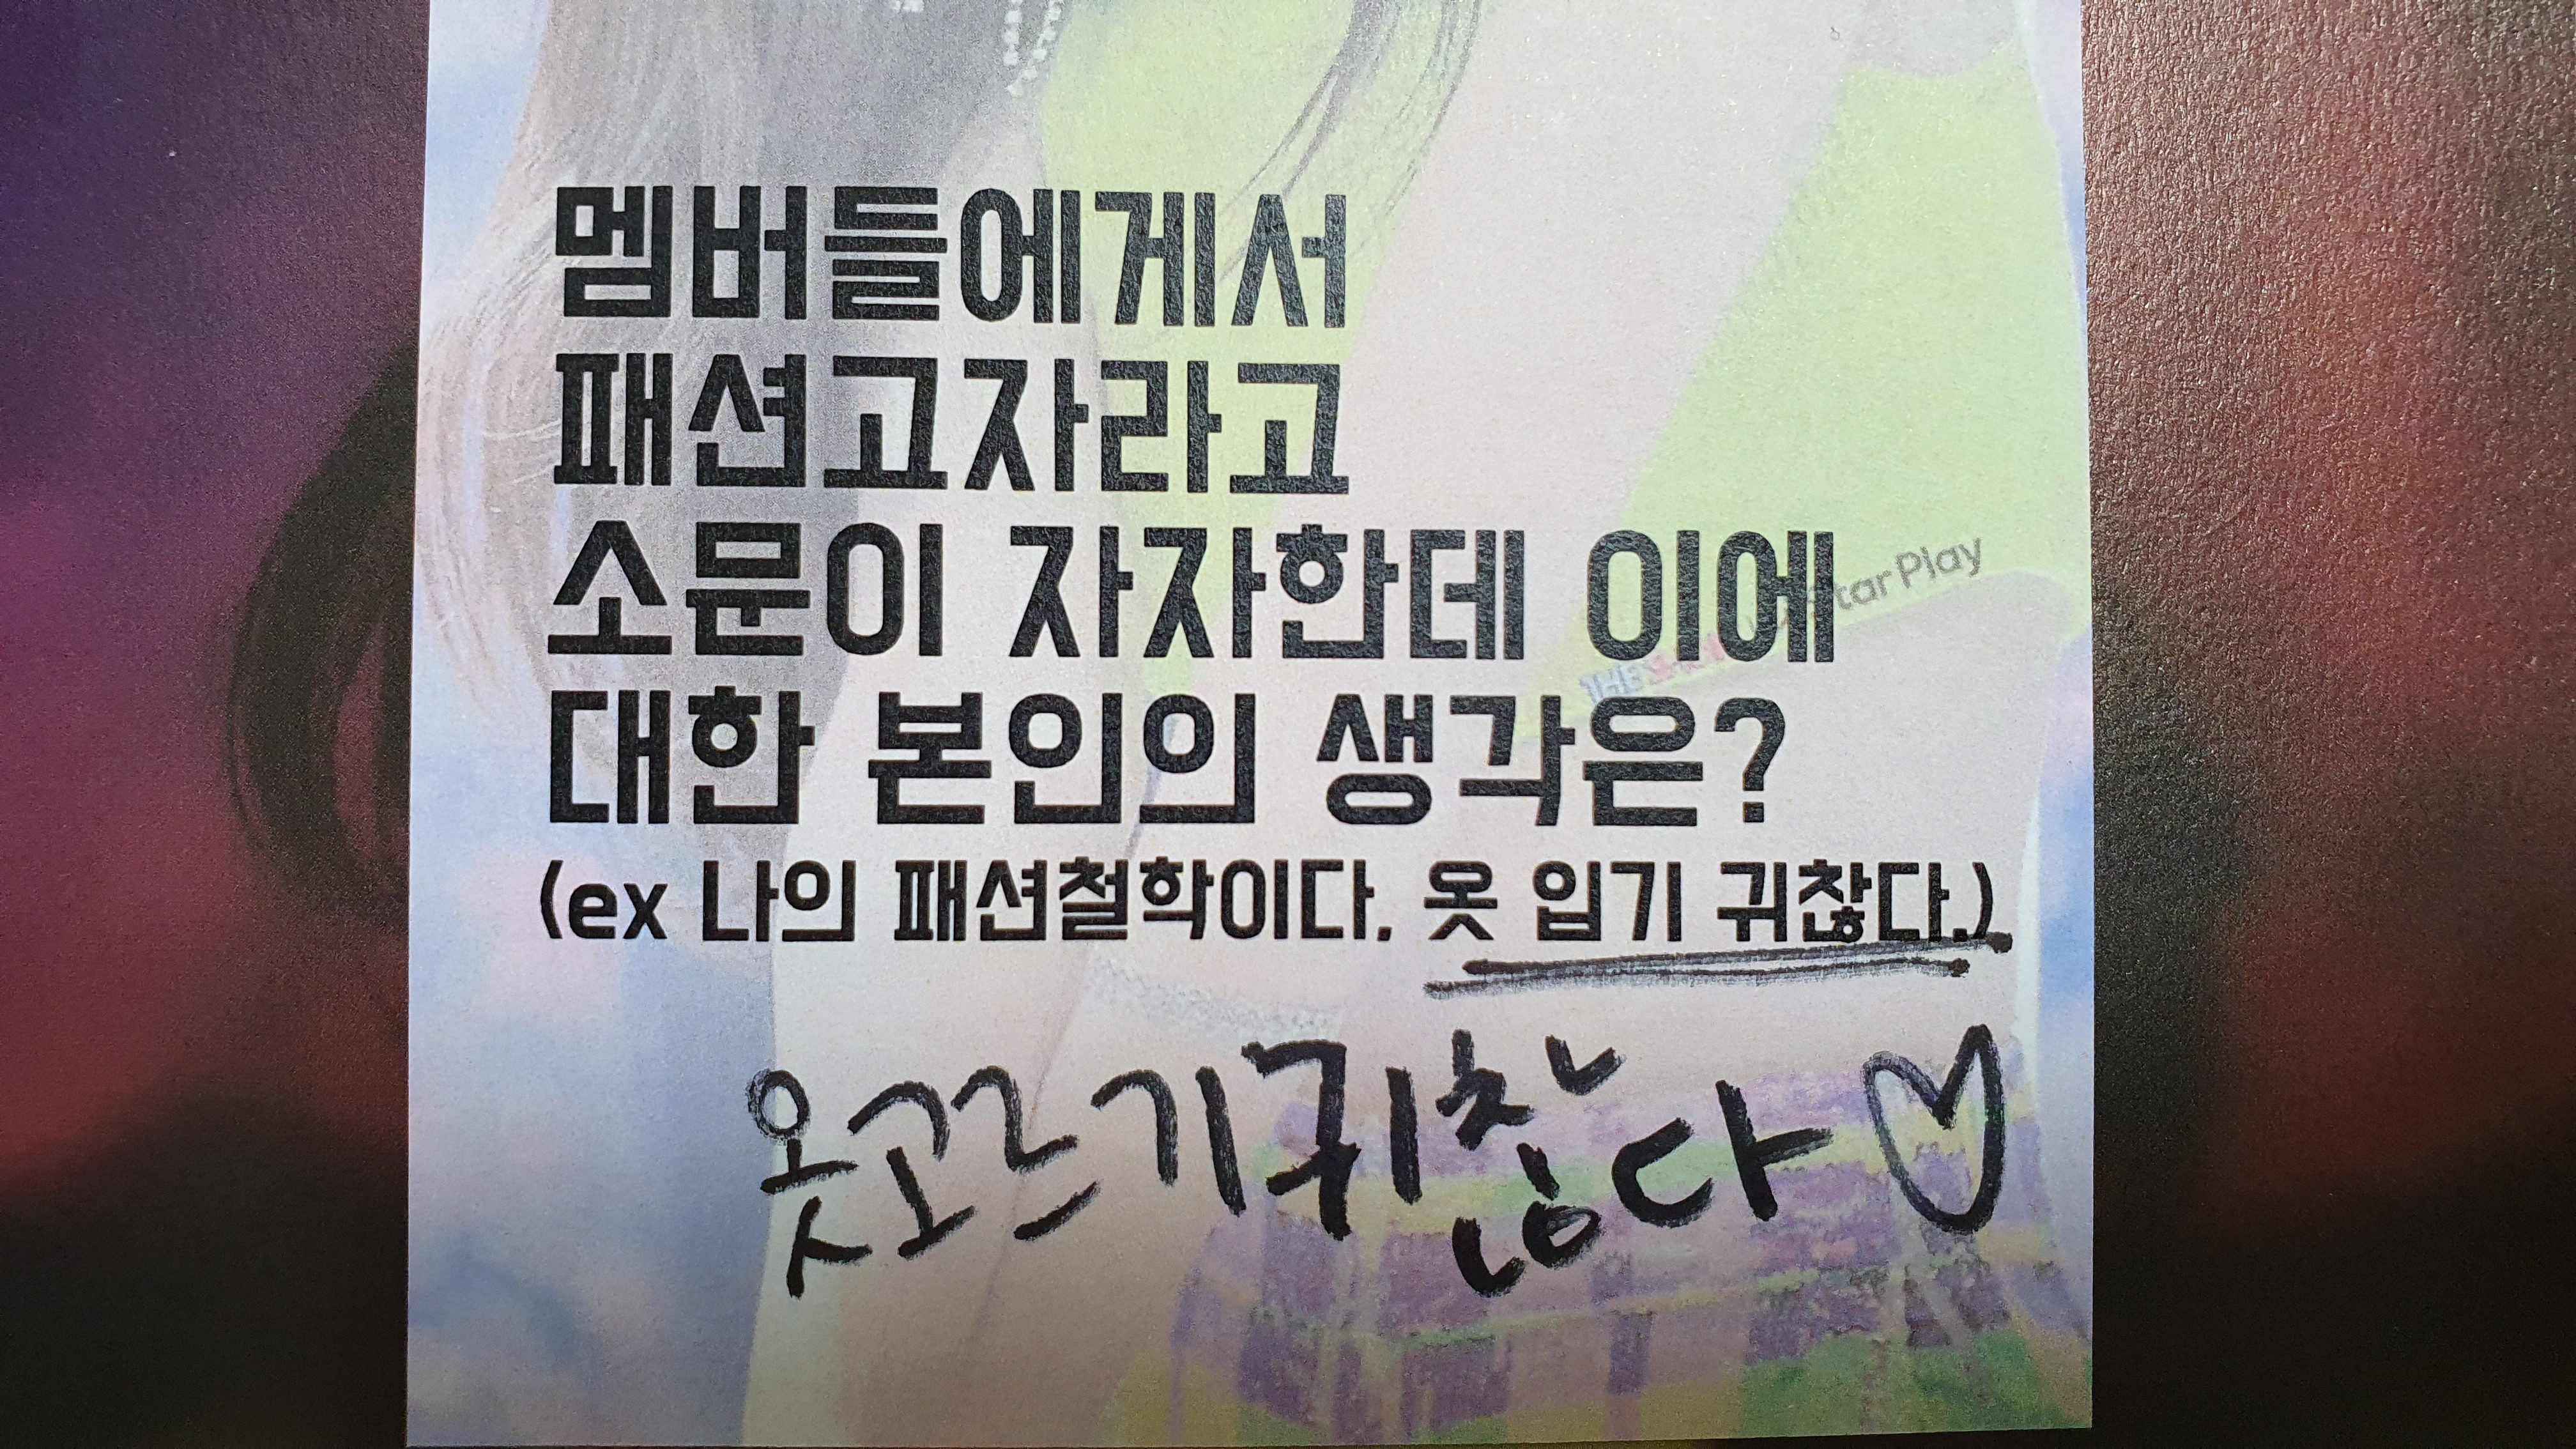 멤버들에게서
패션고자라고
소문이 자자한데 이에
대한 본인의 생각은?
(ex 나의 패션철학이다. 옷 입기 귀찮다.)
옷고르기귀찮다♡
THE
Star Play